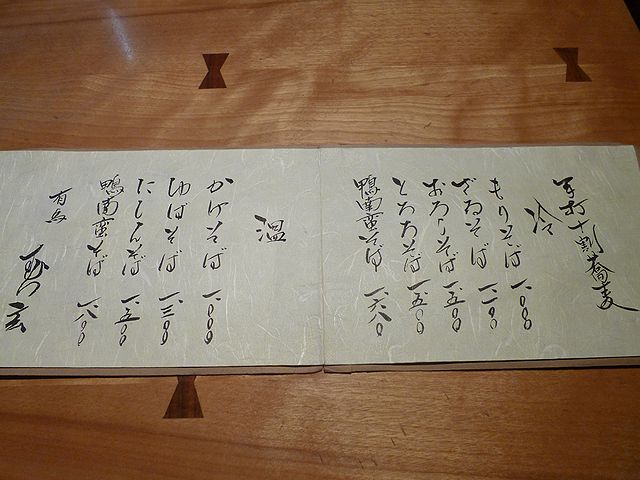 手打十割蕎麦
冷
もりそば 一、〇〇〇
ざるそば 一、一〇〇
おろしそば 一、五〇〇
とろろそば 一、五〇〇
鴨南蛮そば 一、六八〇
温
かけそば 一、〇〇〇
ゆばそば 一、三〇〇
にしんそば 一、五〇〇
鴨南蛮そば 一、八〇〇
有馬 むら玄